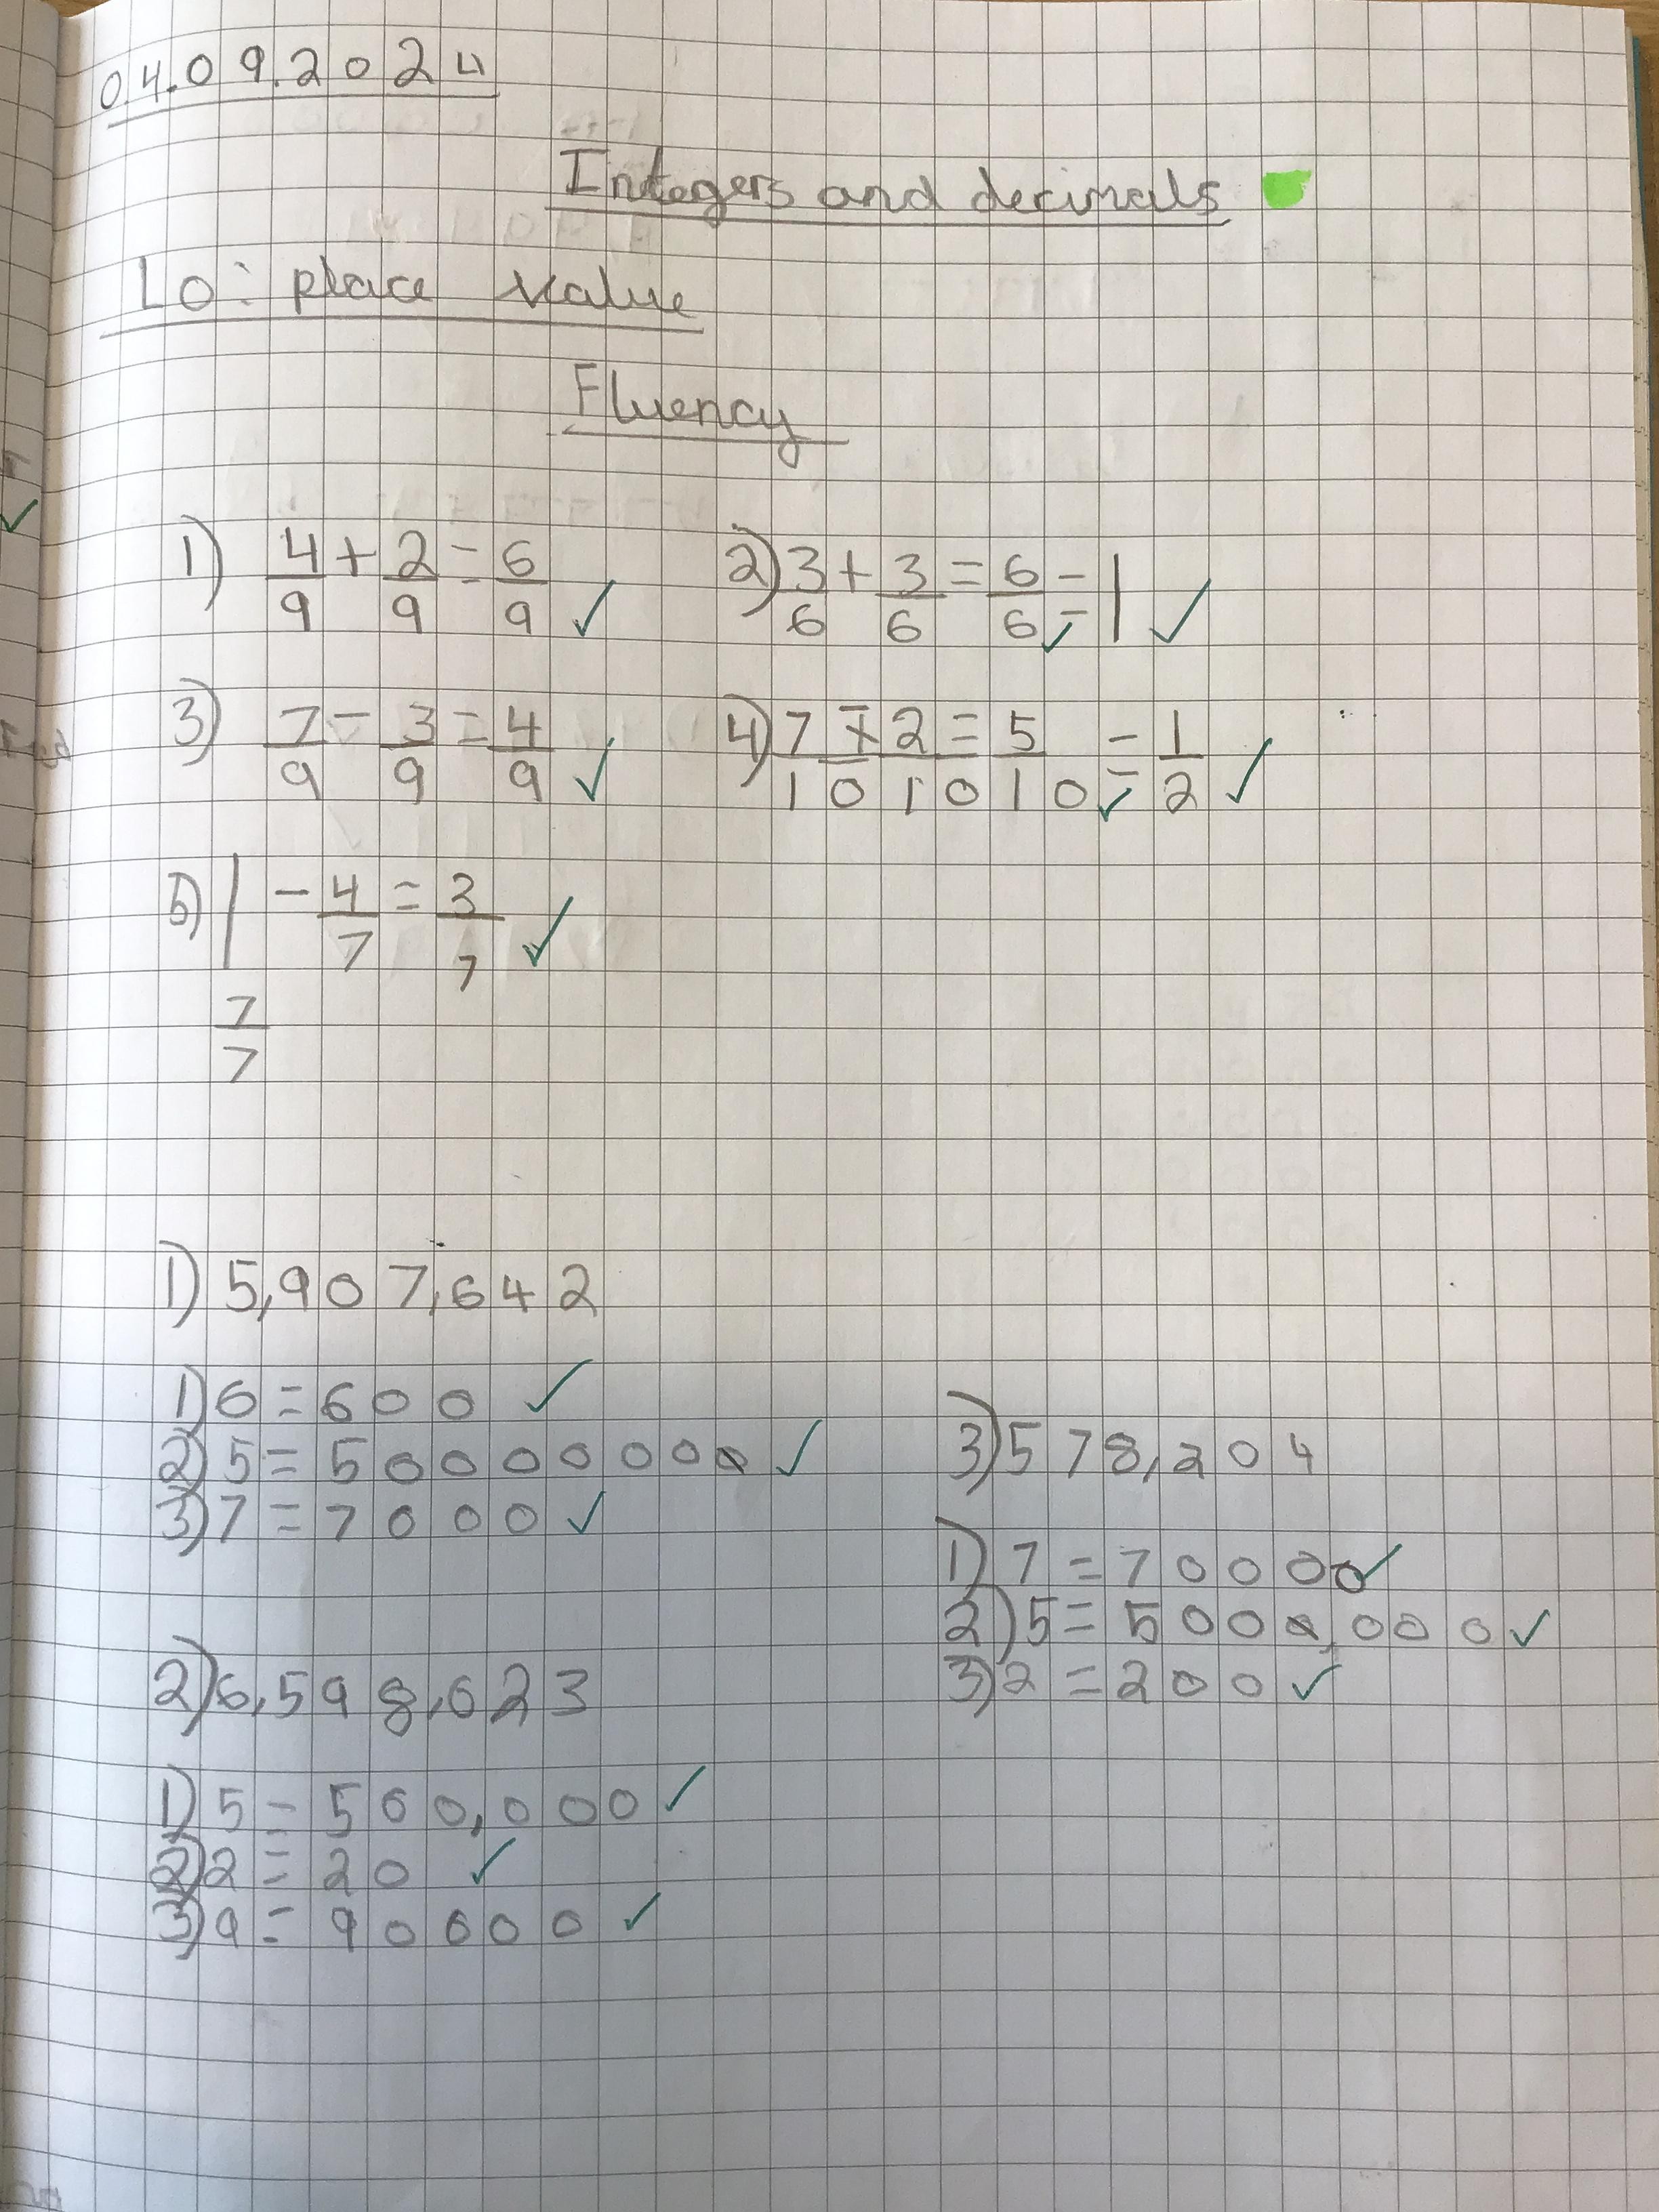 04.09.2024
Integers and decimals
LO: place value
Fluency
1) 4/9 + 2/9 = 6/9 ✓
2) 3/6 + 3/6 = 6/6 ✓ = 1 ✓
3) 7/9 - 3/9 = 4/9 ✓
4) 7/10 - 2/10 = 5/10 ✓ = 1/2 ✓
5) 1 - 4/7 = 3/7 ✓
7/7
1) 5,907,642
1) 6 = 600 ✓
2) 5 = 5000000 ✓
3) 7 = 7000 ✓
2) 6,598,623
1) 5 = 500,000 ✓
2) 2 = 20 ✓
3) 9 = 90000 ✓
3) 578,204
1) 7 = 70000 ✓
2) 5 = 500,000 ✓
3) 2 = 200 ✓